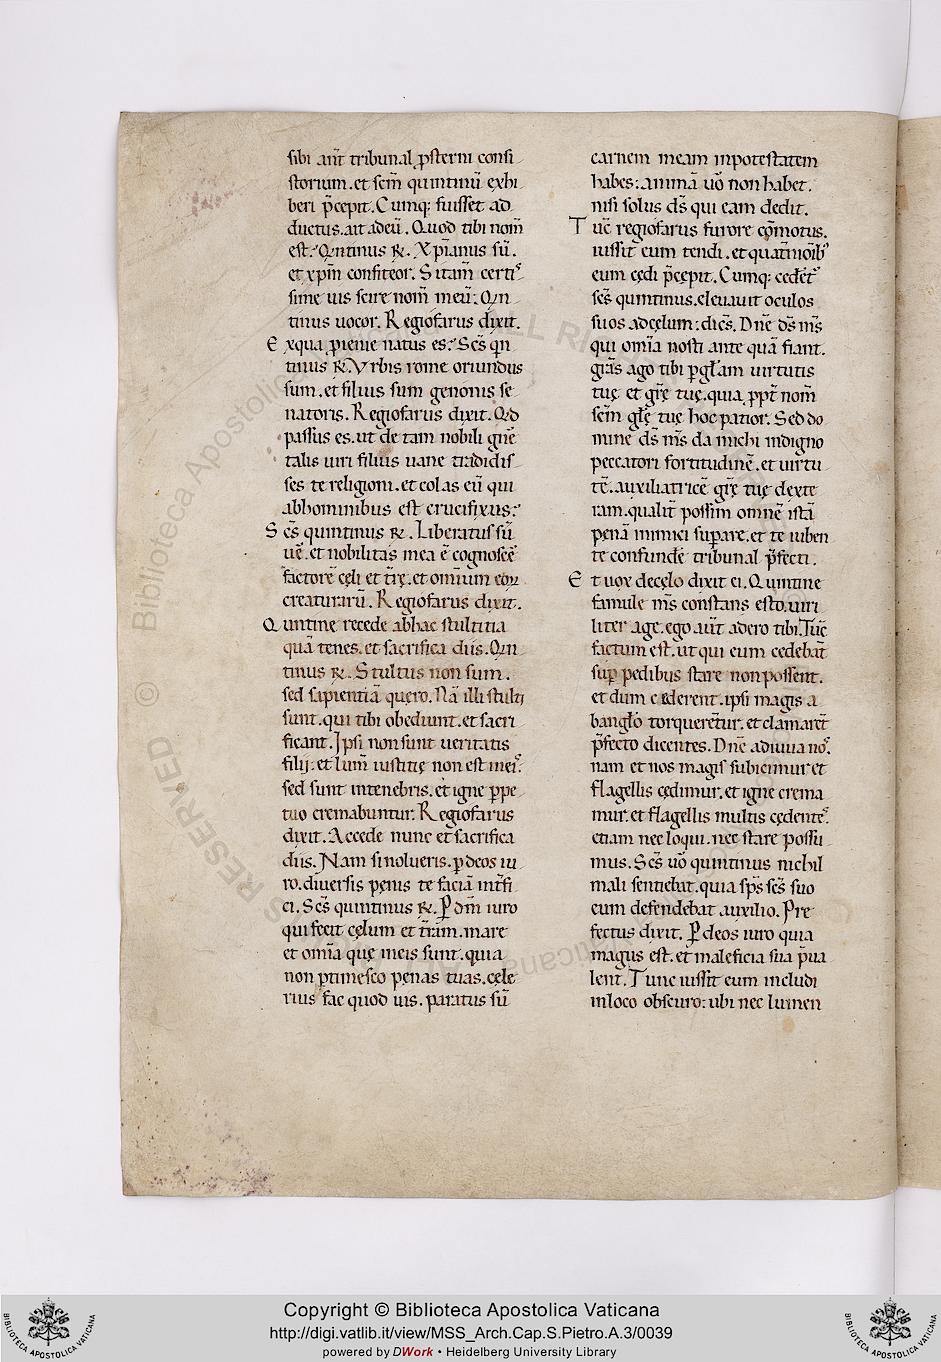 sibi aūt tribunal p̱sterni consi
storium. et sc̄m quintinū exhi
beri p̄cepit. Cumq; fuisset ad
ductus. ait ad eū. Quod tibi nom̄
est? Qn̄tinus R̷. Xp̄ianus sū.
et xp̄m confiteor. Si tam̄ certis
sime uis scire nom̄ meū: Qn̄
tinus uocor. Regiosarus dixit.
Ex qua p̱genie natus es? Sc̄s qn̄
tinus R̷. Vrbis rome oriundus
sum. et filius sum genonis se
natoris. Regiosarus dixit. Qd̄
passus es. ut de tam nobili gn̄e
talis uiri filius uane tradidis
ses te religioni. et colas eū qui
ab hominibus est crucifixus?
Sc̄s quintinus R̷. Liberatus sū
uē. et nobilitas mea ē cognoscē
factorē cęli et tr̄ę. et omnium eoꝝ
creaturarū. Regiosarus dixit.
Quintine recede ab hac stultitia
quā tenes. et sacrifica diis. Qn̄
tinus R̷. Stultus non sum.
sed sapientiā quero. Nā illi stulti
sunt. qui tibi obediunt. et sacri
ficant. Ipsi non sunt ueritatis
filii. et lum̄ iustitię non est in eis.
sed sunt in tenebris. et igne p̱pe
tuo cremabuntur. Regiosarus
dixit. Accede nunc et sacrifica
diis. Nam si nolueris. p̱ deos iu
ro. diuersis pęnis te faciā int̄fi
ci. Sc̄s quintinus R̷. P̱ dm̄ iuro
qui fecit cęlum et tr̄am. mare
et omīa quę in eis sunt. quia
non p̱timesco pęnas tuas. cęle
rius fac quod uis. paratus sū
carnem meam in potestatem
habes: animā uō non habet.
nisi solus dš qui eam dedit.
Tūc regiosarus furore cōmotus.
iussit eum tendi. et quat̄ mōib;
eum cędi p̄cepit. Cumq; cedet̄
sc̄s quintinus. eleuauit oculos
suos ad cęlum: dic̄s. Dn̄e dš mš
qui omīa nosti ante quā fiant.
grās ago tibi p̱ głam uirtutis
tuę et gr̄ę tuę. quia ppt̄ nom̄
sc̄m głę tuę hoc patior. Sed do
mine dš mš da michi indigno
peccatori fortitudinē. et uirtu
tē. auxiliatricē gr̄ę tuę dexte
ram. qualit̄ possim omnē istā
penā inimici sup̱are. et te iuben
te confundē tribunal p̄fecti.
Et uox de cęlo dixit ei. Quintine
famule mš constans esto. uiri
liter age. ego aūt adero tibi. Tūc
factum est. ut qui eum cedebāt
sup̱ pedibus stare non possent.
et dum cederent. ipsi magis a
b anglo torquerēt̄. et clamarēt
p̄fecto dicentes. Dn̄e adiuua nos.
nam et nos magis subicimur et
flagellis cędimur. et igne crema
mur. et flagellis multis cędentes.
etiam nec loqui. nec stare possu
mus. Sc̄s uō quintinus nichil
mali sentiebat. quia sp̄s sc̄s suo
eum defendebat auxilio. Pre
fectus dixit. P̱ deos iuro quia
magus est. et maleficia sua p̄ua
lent. Tunc iussit eum includi
in loco obscuro: ubi nec lumen
Copyright © Biblioteca Apostolica Vaticana
http://digi.vatlib.it/view/MSS_Arch.Cap.S.Pietro.A.3/0039
powered by DWork • Heidelberg University Library
BIBLIOTECA APOSTOLICA VATICANA
BIBLIOTECA APOSTOLICA VATICANA